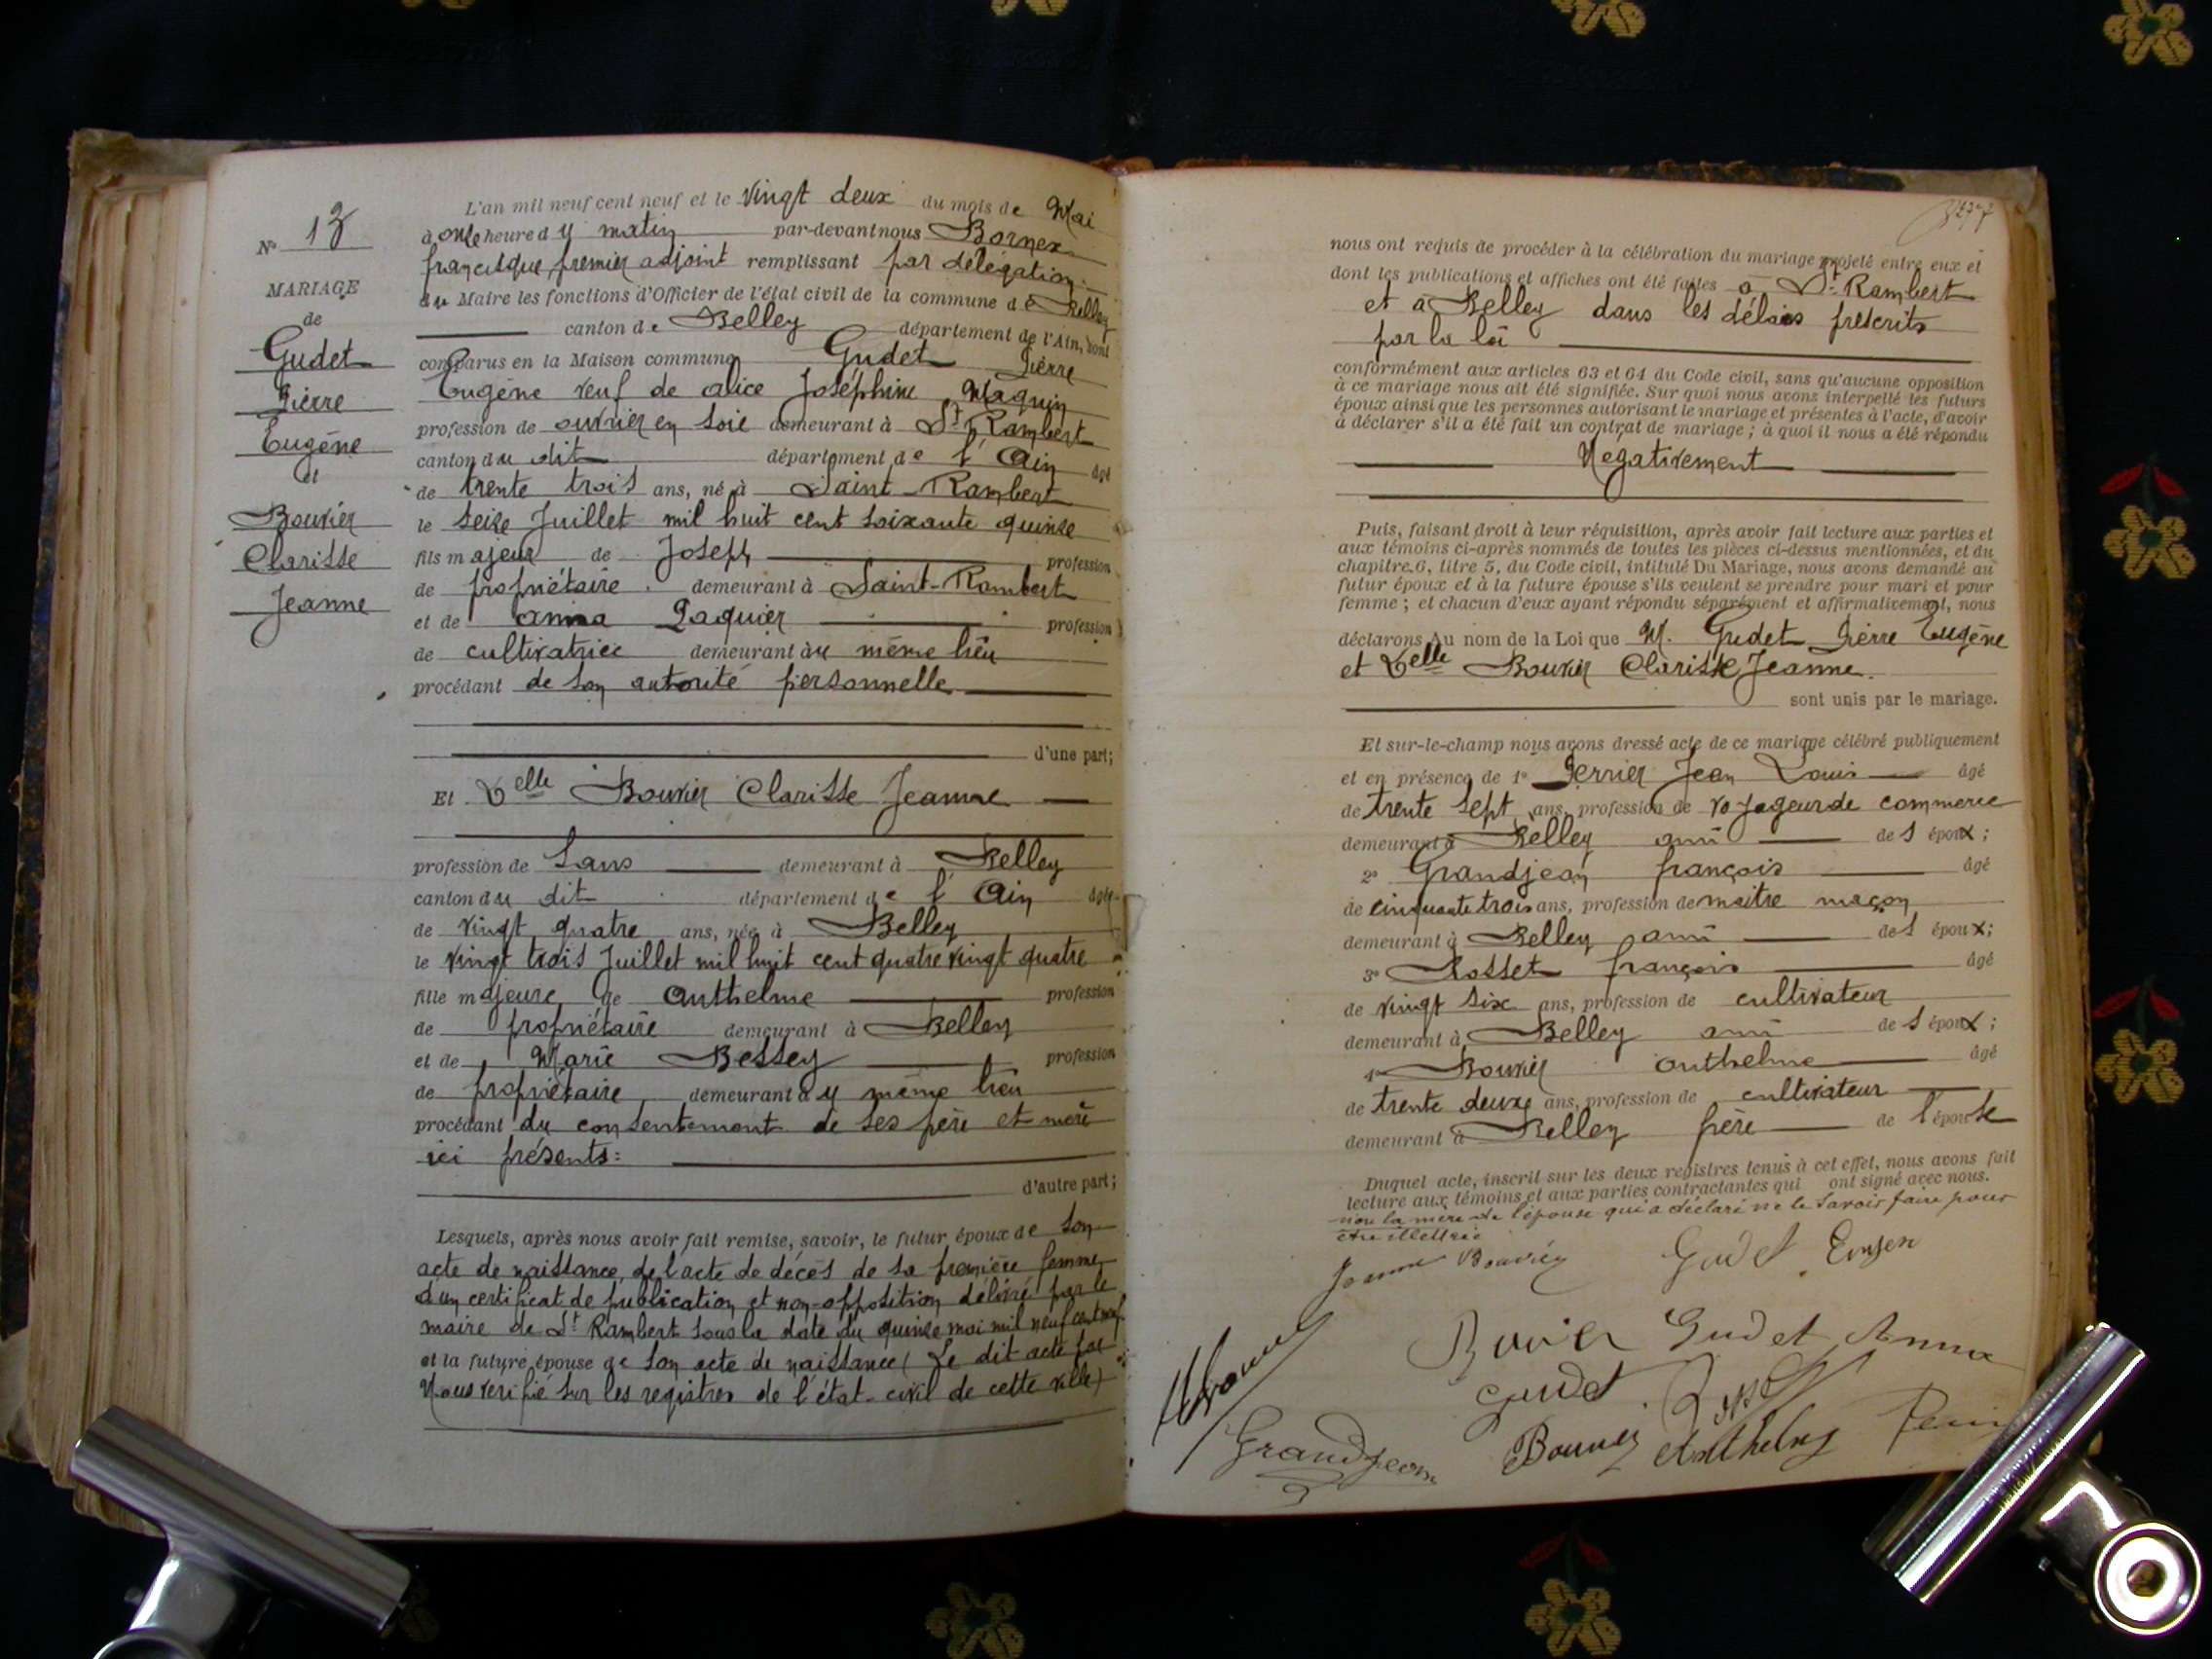 L'an mil neuf cent neuf et le vingt deux du mois de Mai
N° 13
à onze heure du matin par-devant nous Bornex
françisque premier adjoint remplissant par délégation
MARIAGE
du Maire les fonctions d'Officier de l'état civil de la commune de Belley
de
canton de Belley département de l'Ain, sont
Gudet
comparus en la Maison commune Gudet Pierre
Pierre
Eugène veuf de alice Joséphine Maquin
Eugène
profession de ouvrier en soie demeurant à St Rambert
et
canton du dit département de l'Ain âgé
de trente trois ans, né à Saint-Rambert
Bouvier
le seize Juillet mil huit cent soixante quinze
Clarisse
fils majeur de Joseph profession
Jeanne
de propriétaire demeurant à Saint-Rambert
et de anna Paquier profession
de cultivatrice demeurant au même lieu
procédant de son autorité personnelle
d'une part;
Et Delle Bouvier Clarisse Jeanne
profession de Sans demeurant à Belley
canton du dit département de l'Ain âgée
de vingt quatre ans, née à Belley
le vingt trois Juillet mil huit cent quatre vingt quatre
fille majeure de Anthelme profession
de propriétaire demeurant à Belley
et de Marie Bessey profession
de propriétaire demeurant au même lieu
procédant du consentement de ses père et mère
ici présents:
d'autre part;
Lesquels, après nous avoir fait remise, savoir, le futur époux de son
acte de naissance, de l'acte de décès de sa première femme,
d'un certificat de publication et non-opposition délivré par le
maire de St Rambert sous la date du quinze mai mil neuf cent neuf
et la future épouse de son acte de naissance (Le dit acte par
Nous verifié sur les registres de l'état-civil de cette ville)
nous ont requis de procéder à la célébration du mariage projeté entre eux et
dont les publications et affiches ont été faites à St-Rambert
et à Belley dans les délais prescrits
par la loi
conformément aux articles 63 et 64 du Code civil, sans qu'aucune opposition
à ce mariage nous ait été signifiée. Sur quoi nous avons interpellé les futurs
époux ainsi que les personnes autorisant le mariage et présentes à l'acte, d'avoir
à déclarer s'il a été fait un contrat de mariage; à quoi il nous a été répondu
Négativement
Puis, faisant droit à leur réquisition, après avoir fait lecture aux parties et
aux témoins ci-après nommés de toutes les pièces ci-dessus mentionnées, et du
chapitre 6, titre 5, du Code civil, intitulé Du Mariage, nous avons demandé au
futur époux et à la future épouse s'ils veulent se prendre pour mari et pour
femme; et chacun d'eux ayant répondu séparément et affirmativement, nous
déclarons Au nom de la Loi que M. Gudet Pierre Eugène
et Delle Bouvier Clarisse Jeanne.
sont unis par le mariage.
Et sur-le-champ nous avons dressé acte de ce mariage célébré publiquement
et en présence de 1° Perrier Jean Louis âgé
de trente sept ans, profession de voyageur de commerce
demeurant à Belley ami des époux;
2° Grandjean françois âgé
de cinquante trois ans, profession de maitre maçon
demeurant à Belley ami des époux;
3° Rosset françois âgé
de vingt six ans, profession de cultivateur
demeurant à Belley ami des époux;
4° Bouvier anthelme âgé
de trente deux ans, profession de cultivateur
demeurant à Belley frère de l'épouse
Duquel acte, inscrit sur les deux registres tenus à cet effet, nous avons fait
lecture aux témoins et aux parties contractantes qui ont signé avec nous.
non la mère de l'épouse qui a déclaré ne le savoir faire pour
être illettrée
Jeanne Bouvier Gudet Eugen
Bouvier Gudet Anna
Gudet Rosset
Grandjean Bouvier Anthelme